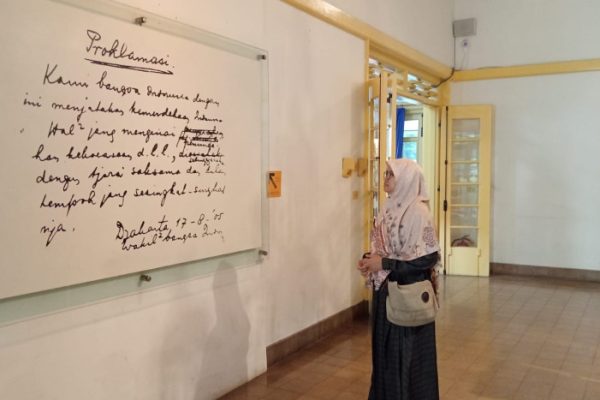 Proklamasi.
Kami bangsa Indonesia dengan
ini menjatakan kemerdekaan Indonesia
. Hal² jang mengenai
han kekoeasaan d.l.l.,
dengan tjara saksama dan dalam
tempoh jang sesingkat-singkat
nja.
Djakarta 17-8-'05
Wakil² bangsa Indon